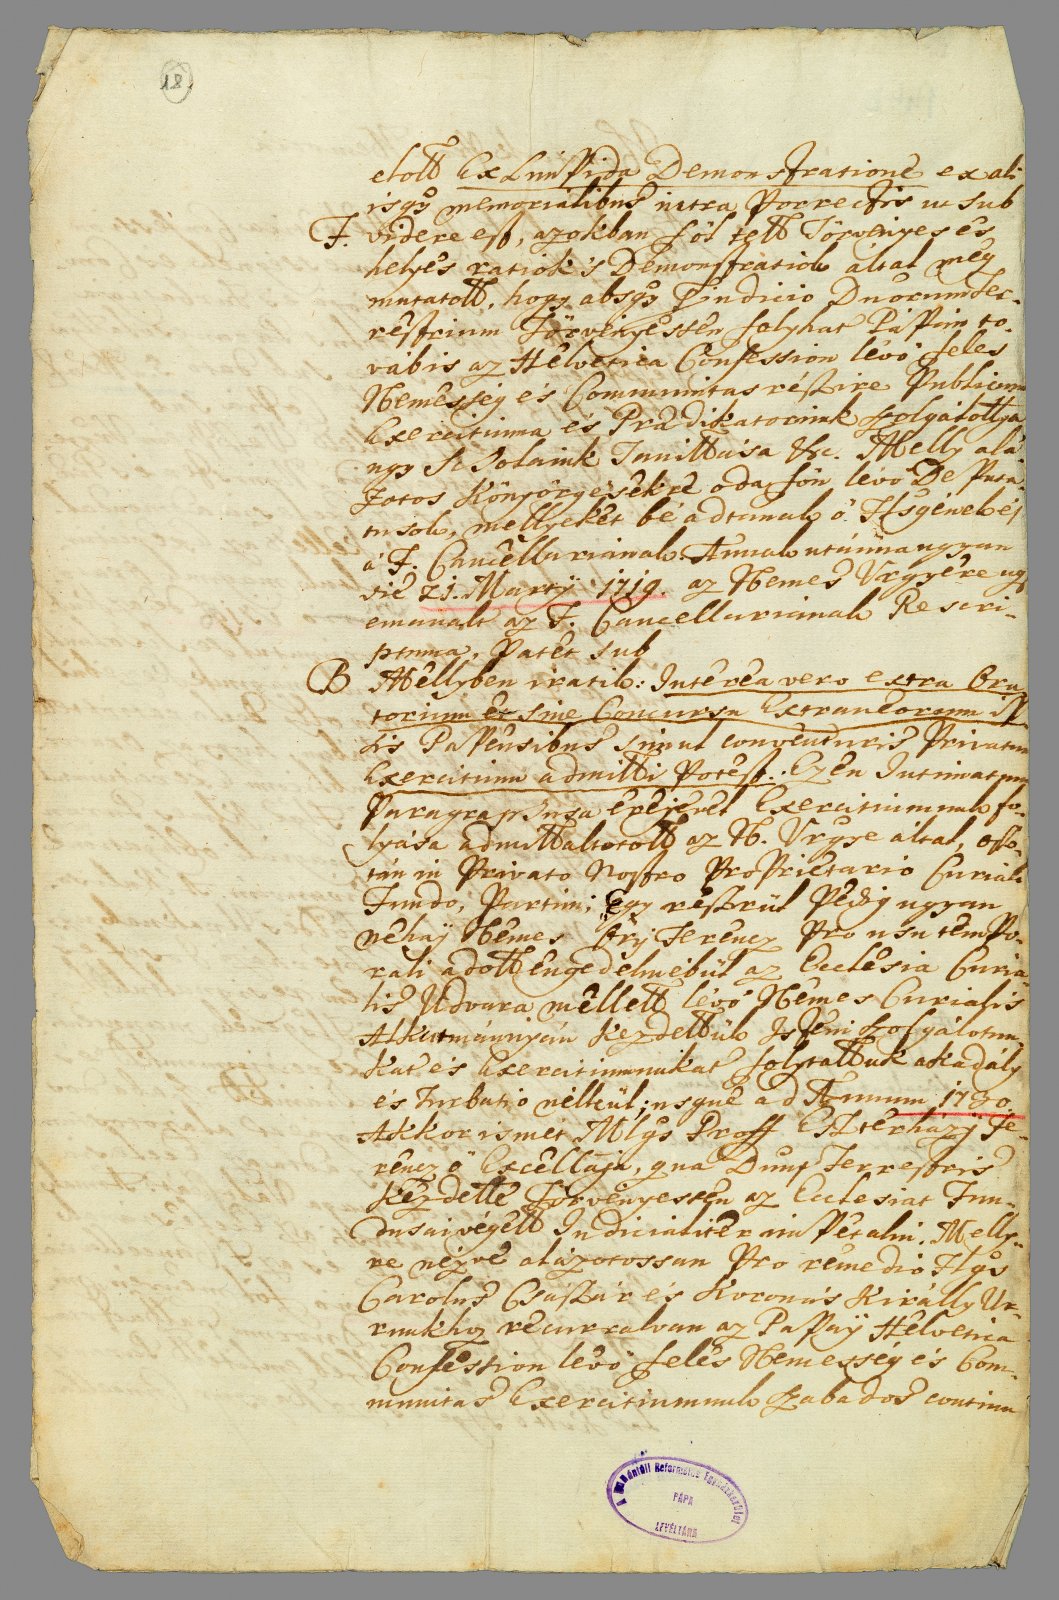 18
etott Ex Limpida Demonstratione ex ali
isqꝫ memorialibus intra Porrectis ut sub
F. videre est, azokban föl tett Törvényes és
helyes ratiok 's Demonstratiok által meg
mutatott, hogy absqꝫ Iudicio Dnorum Ter-
restrium Törvényessen folyhat Pápán to-
vábis az Helvetica Confession lévö feles
Nemesség és Communitas részire Publicum
Exercitiuma és Prædikatorink szolgálattya
ugy Scholaink Tanittása &c. Melly alá
zatos Könyörgésekre oda fön lévö Deputa
tusok, mellyeket bé adtanak ö Hsgének és
a F. Cancellariának. Annak utánna ugyan
die 21. Martij 1719. az Nemes Vrgyére ugy
emanált az F. Cancellariának Rescri-
ptuma, Patet sub
B Mellyben iratik: Interea vero extra Ora
torium et sine Concursu Extraneorum
lis Papensibus simul conventuris Privatum
Exercitium admitti Potest. Ezen Intimatum
Paragraphusa erejével Exercitiumnak fo-
lyása admittáltatott az N. Vrgye által, osto-
tán in Privato Nostro Proprietario Curiali
Fundo, Partim; Egy részrül Pedig ugyan
néhaj Nemes Ferencz Pro usu tempo-
rali adott engedelmébül az Ecclesia Curia
lis Udvara mellett lévö Nemes Curialis
Alkotmánnyán kezdettük Isteni szolgálatun-
kat és Exercitiumunkat folytattuk akadály
és Turbatio nélkül; usque ad Annum 1730.
Akkor ismét Mlgs Groff Eszterházy Fe-
rencz ö Excellája, qua Dnus Terrestris
kezdette Törvényessen az Ecclesiat Fun-
dusai végett Iudicialiter impetalni. Melly-
re nézve alázatossan Pro remedio Flgs
Carolus Császár és Koronás Királly Ur-
runkhoz recurralvan az Pápay Helvetica
Confession lévö feles Nemesség és Com-
munitas Exercitiumnak szabados continu
A Dunántúli Református Egyházkerület
PÁPA
LEVÉLTÁRA